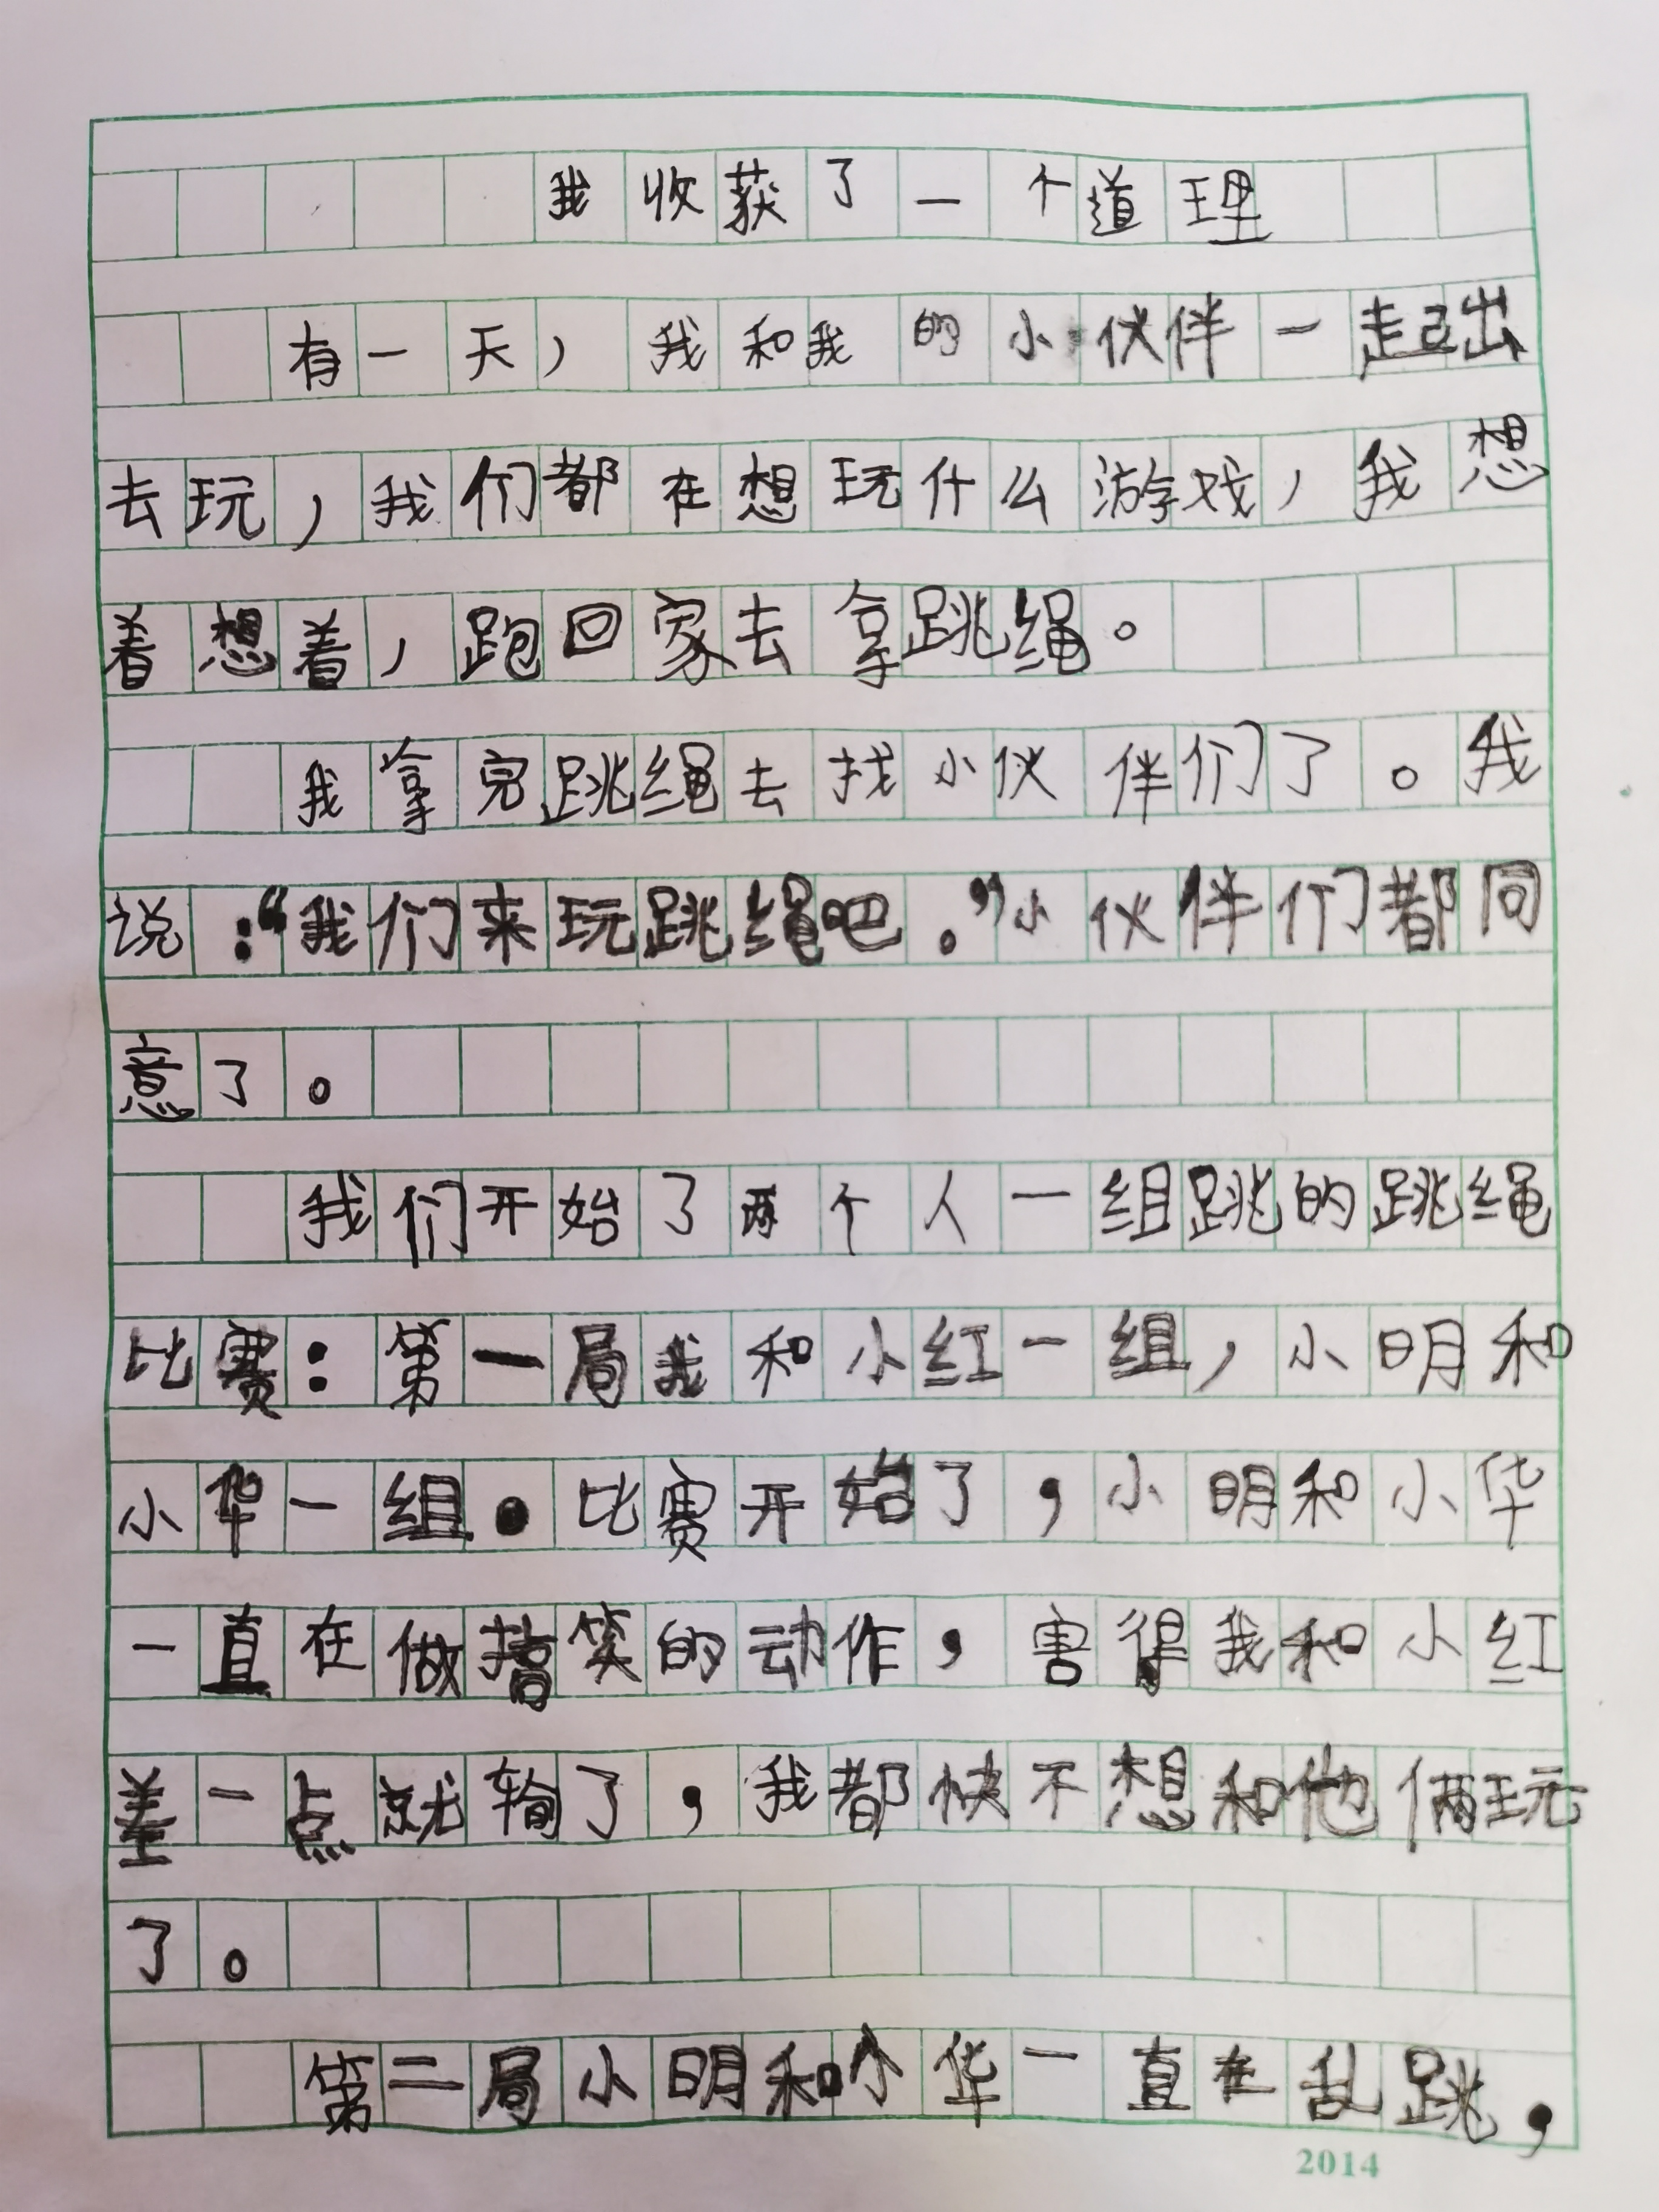 我收获了一个道理
有一天，我和我的小伙伴一起出
去玩，我们都在想玩什么游戏，我想
着想着，跑回家去拿跳绳。
我拿完跳绳去找小伙伴们了。我
说：“我们来玩跳绳吧。”小伙伴们都同
意了。
我们开始了两个人一组跳的跳绳
比赛：第一局我和小红一组，小明和
小华一组。比赛开始了，小明和小华
一直在做搞笑的动作，害得我和小红
差一点就输了，我都快不想和他俩玩
了。
第二局小明和小华一直在乱跳，
2014